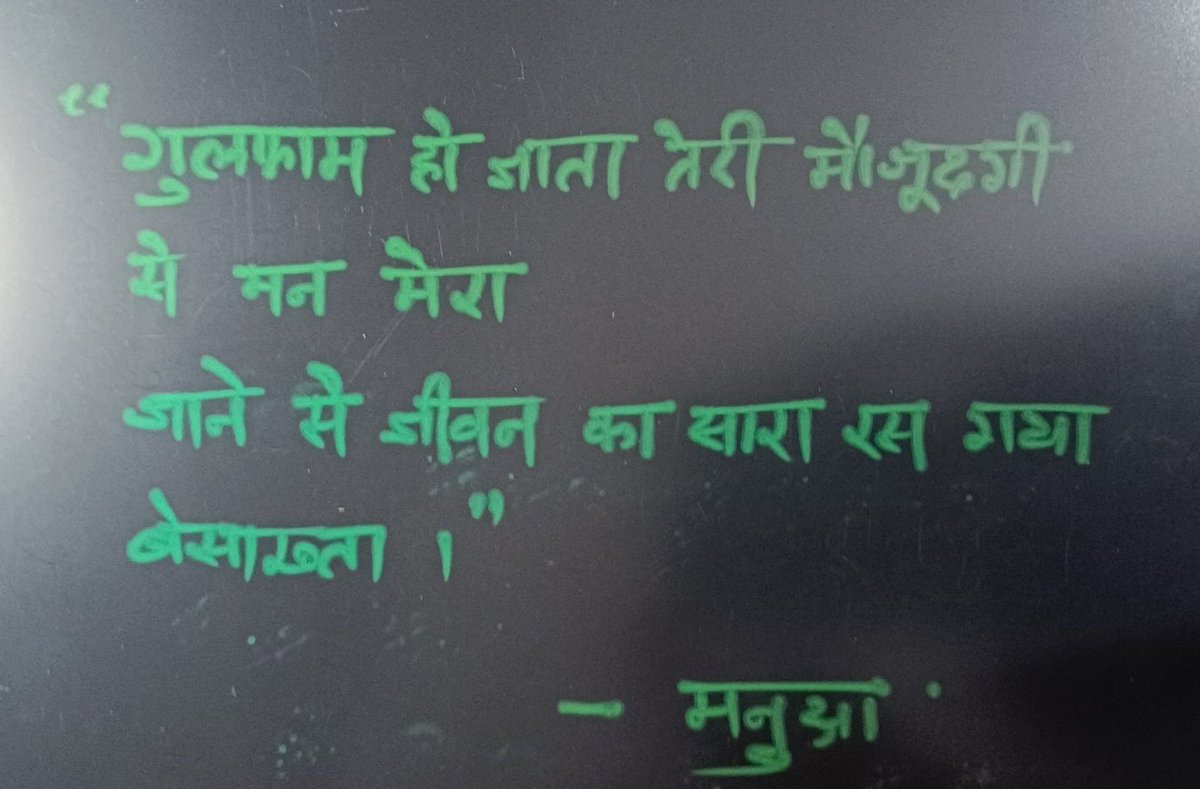 "गुलफाम हो जाता तेरी मौजूदगी
से मन मेरा
जाने से जीवन का सारा रस गया
बेसाख्ता ।"
- मनुश्रा